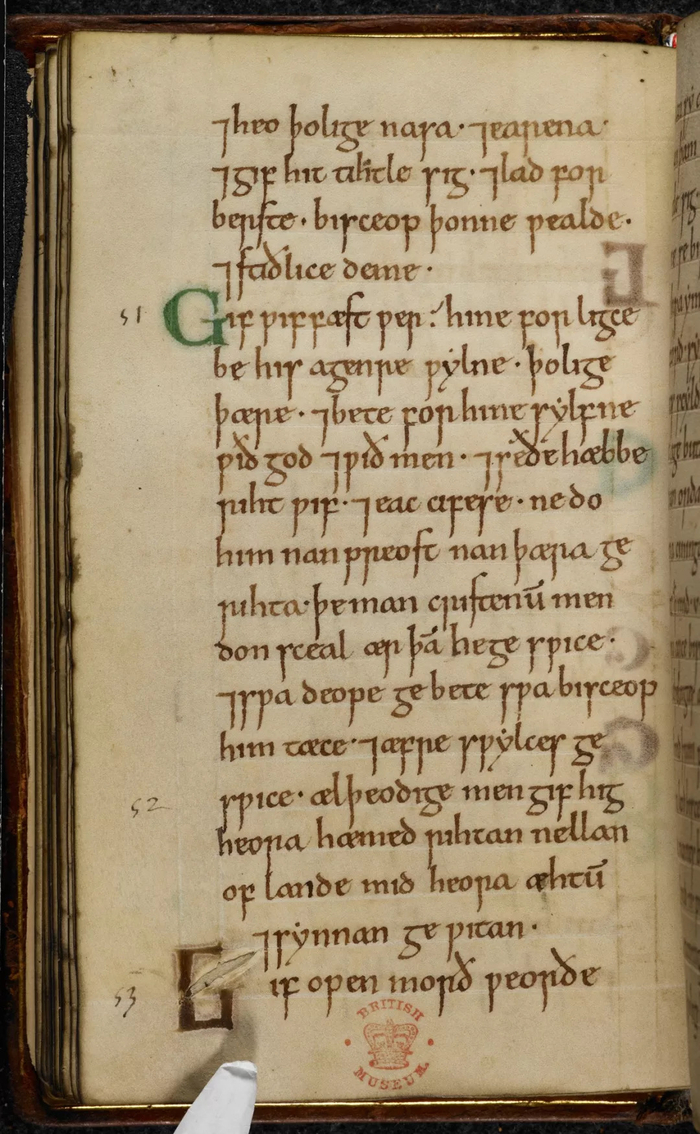 ⁊heo þolige nasa· ⁊earena·
⁊gif hit tihtle sig· ⁊lad for
berste· bisceop þonne ƿealde·
⁊stiðlice deme·
51 Gif ƿiffæst ƿer hine forligce
be his agenre ƿylne· þolige
þære· ⁊bete for hine sylfne
ƿið god ⁊ƿið men· ⁊seðe hæbbe
riht ƿif· ⁊eac cifese· ne do
him nan preost nan þæra ge
rihta· þe man cristenū men
don sceal ær þā he gesƿice·
⁊sƿa deope gebete sƿa bisceop
him tæce· ⁊æfre sƿylces ge
52 sƿice· ælþeodige men gif hig
heora hæmed rihtan nellan
of lande mid heora æhtū
⁊synnan geƿitan·
53 Gif open morð ƿeorðe
BRITISH
MUSEUM